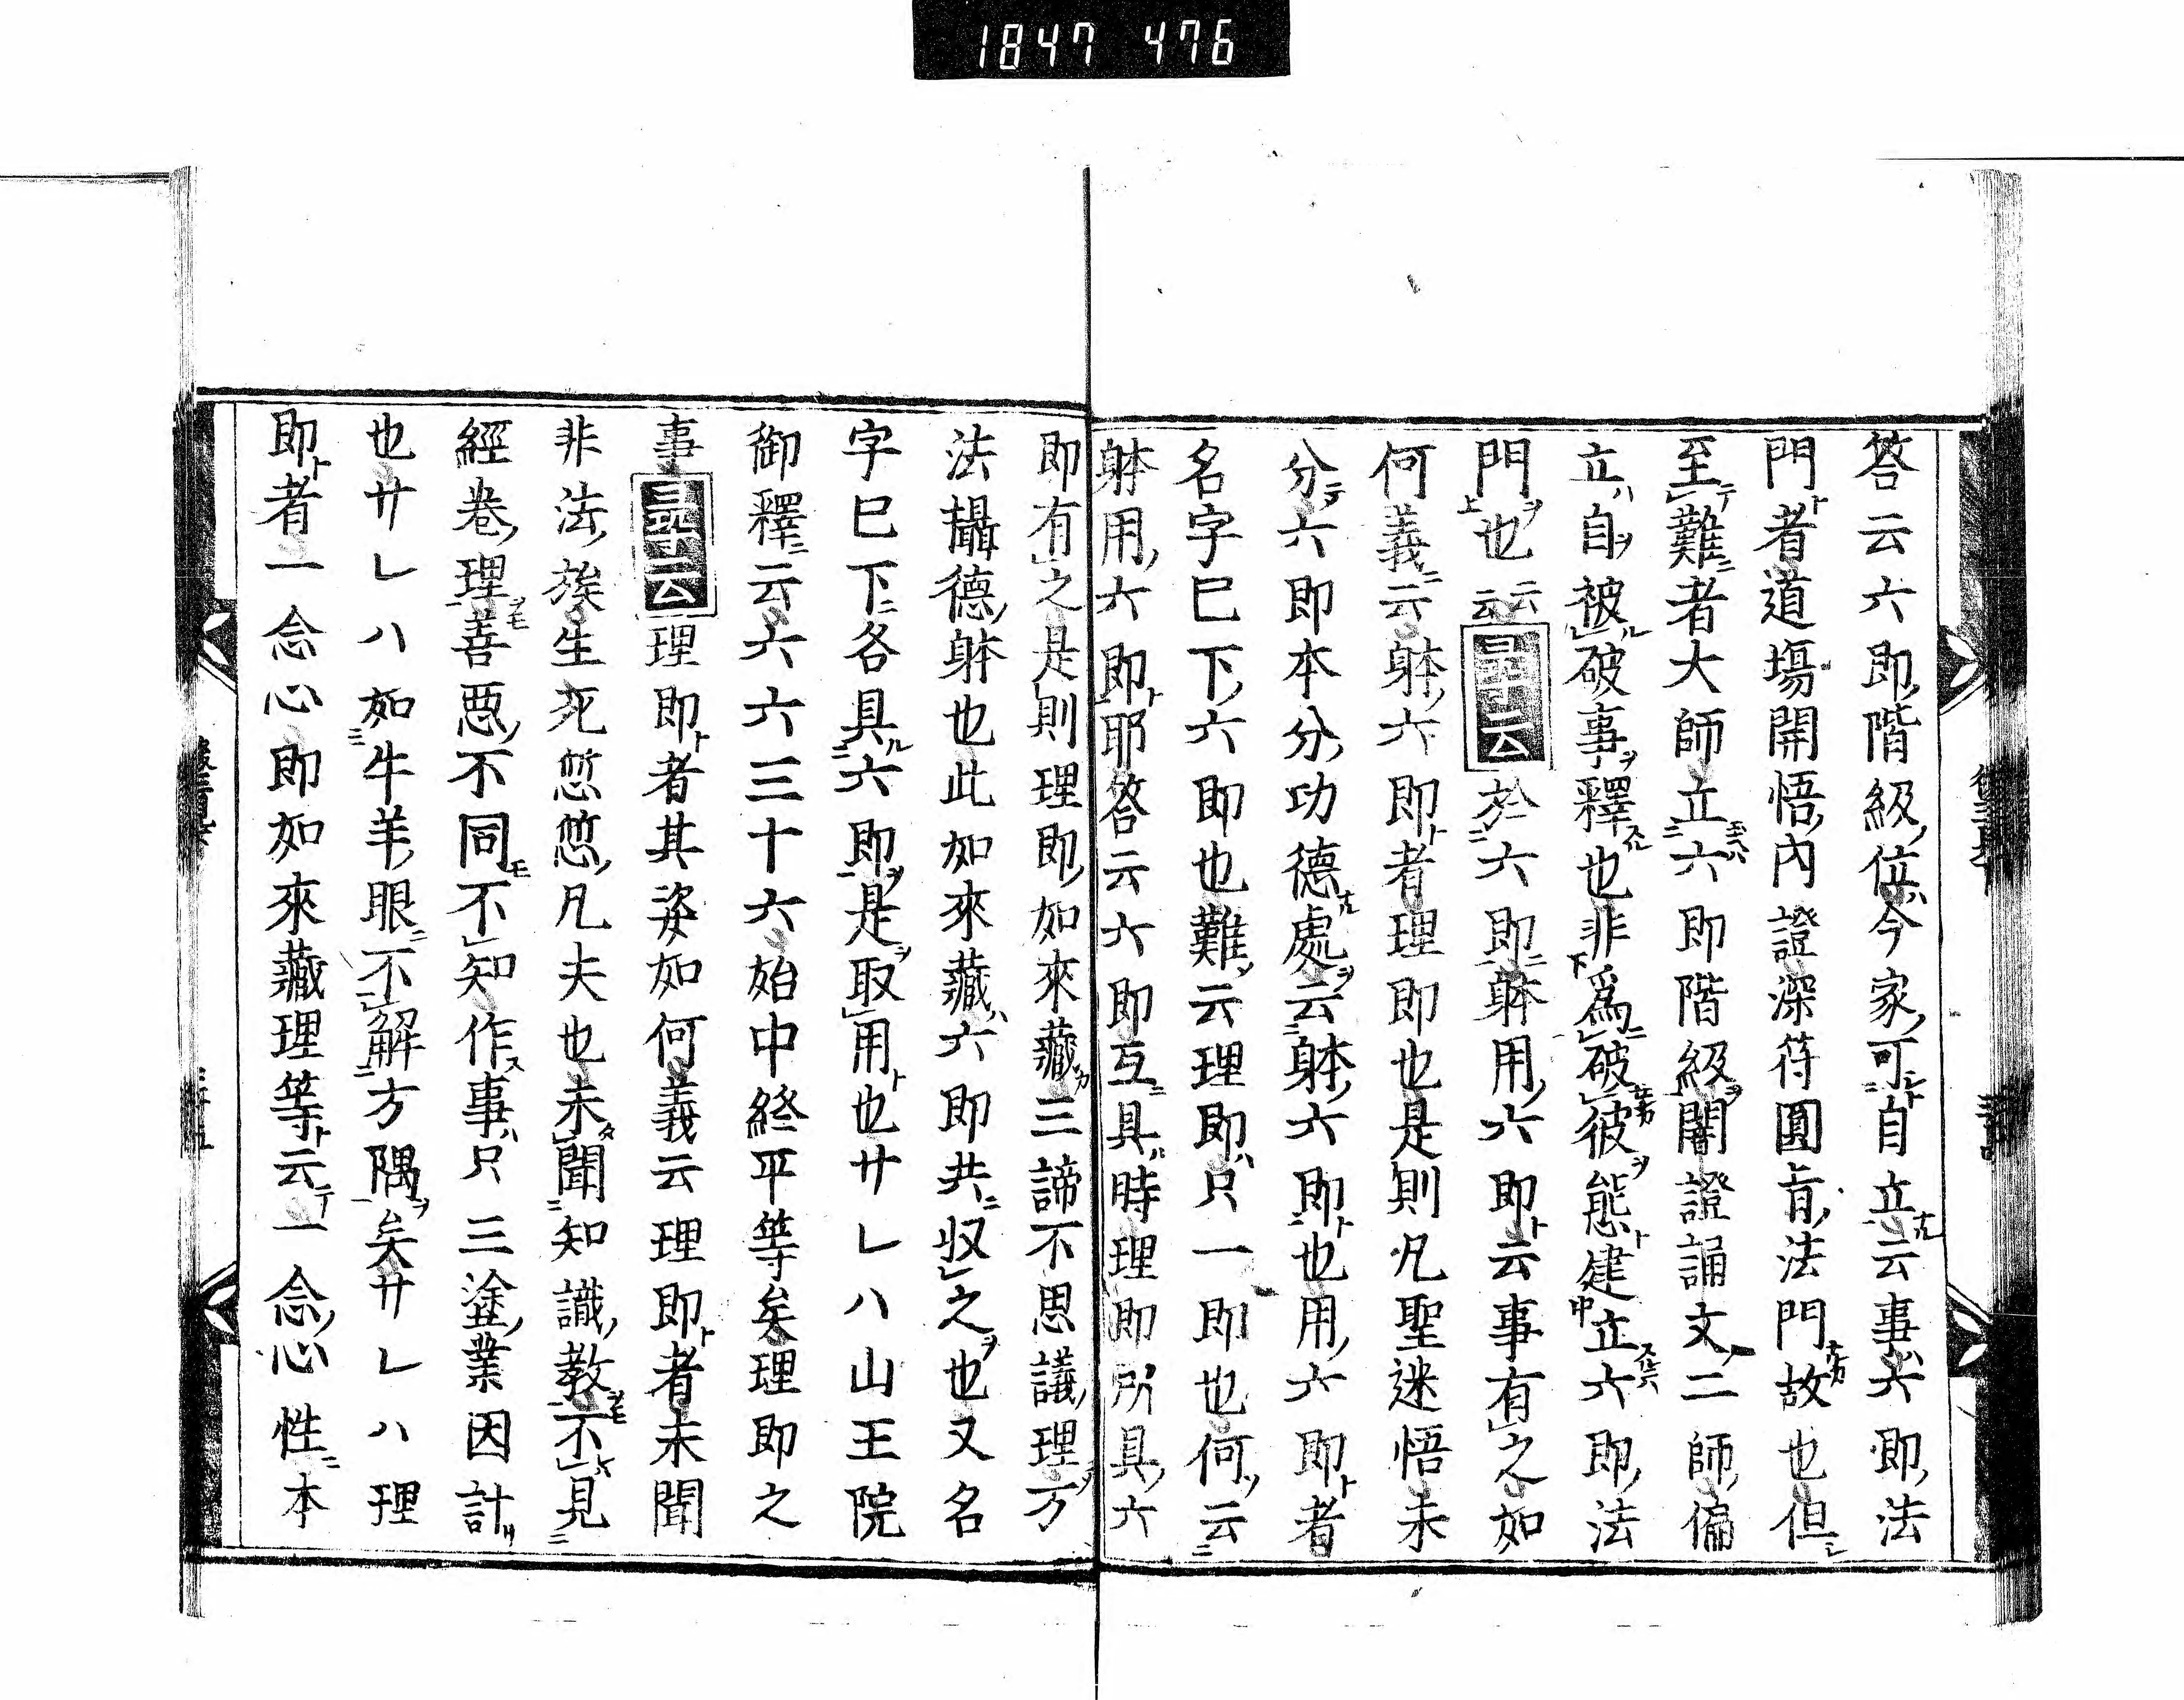 1847 476
答云六即階級位今家可自立云事六即法
門者道場開悟內證深符圓旨法門故也但
至難者大師立六即階級闇證誦文二師偏
立自被破事釋也非爲破彼態建立六即法
門也云云尋云於六即躰用六即云事有之如
何義云躰六即者理即也是則凡聖迷悟未
分六即本分功德處云躰六即也用六即者
名字已下六即也難云理即只一即也何云
躰用六即耶答云六即互具時理即所具六
即有之是則理即如來藏三諦不思議理方
法攝德躰也此如來藏六即共收之也又名
字已下各具六即是取用也サレハ山王院
御釋云六六三十六始中終平等矣理即之
事尋云理即者其姿如何義云理即者未聞
非法族生死悠悠凡夫也未聞知識教不見
經卷理善惡不同不知作事只三塗業因計
也サレハ如牛羊眼不解方隅矣サレハ理
即者一念心即如來藏理等云一念心性本